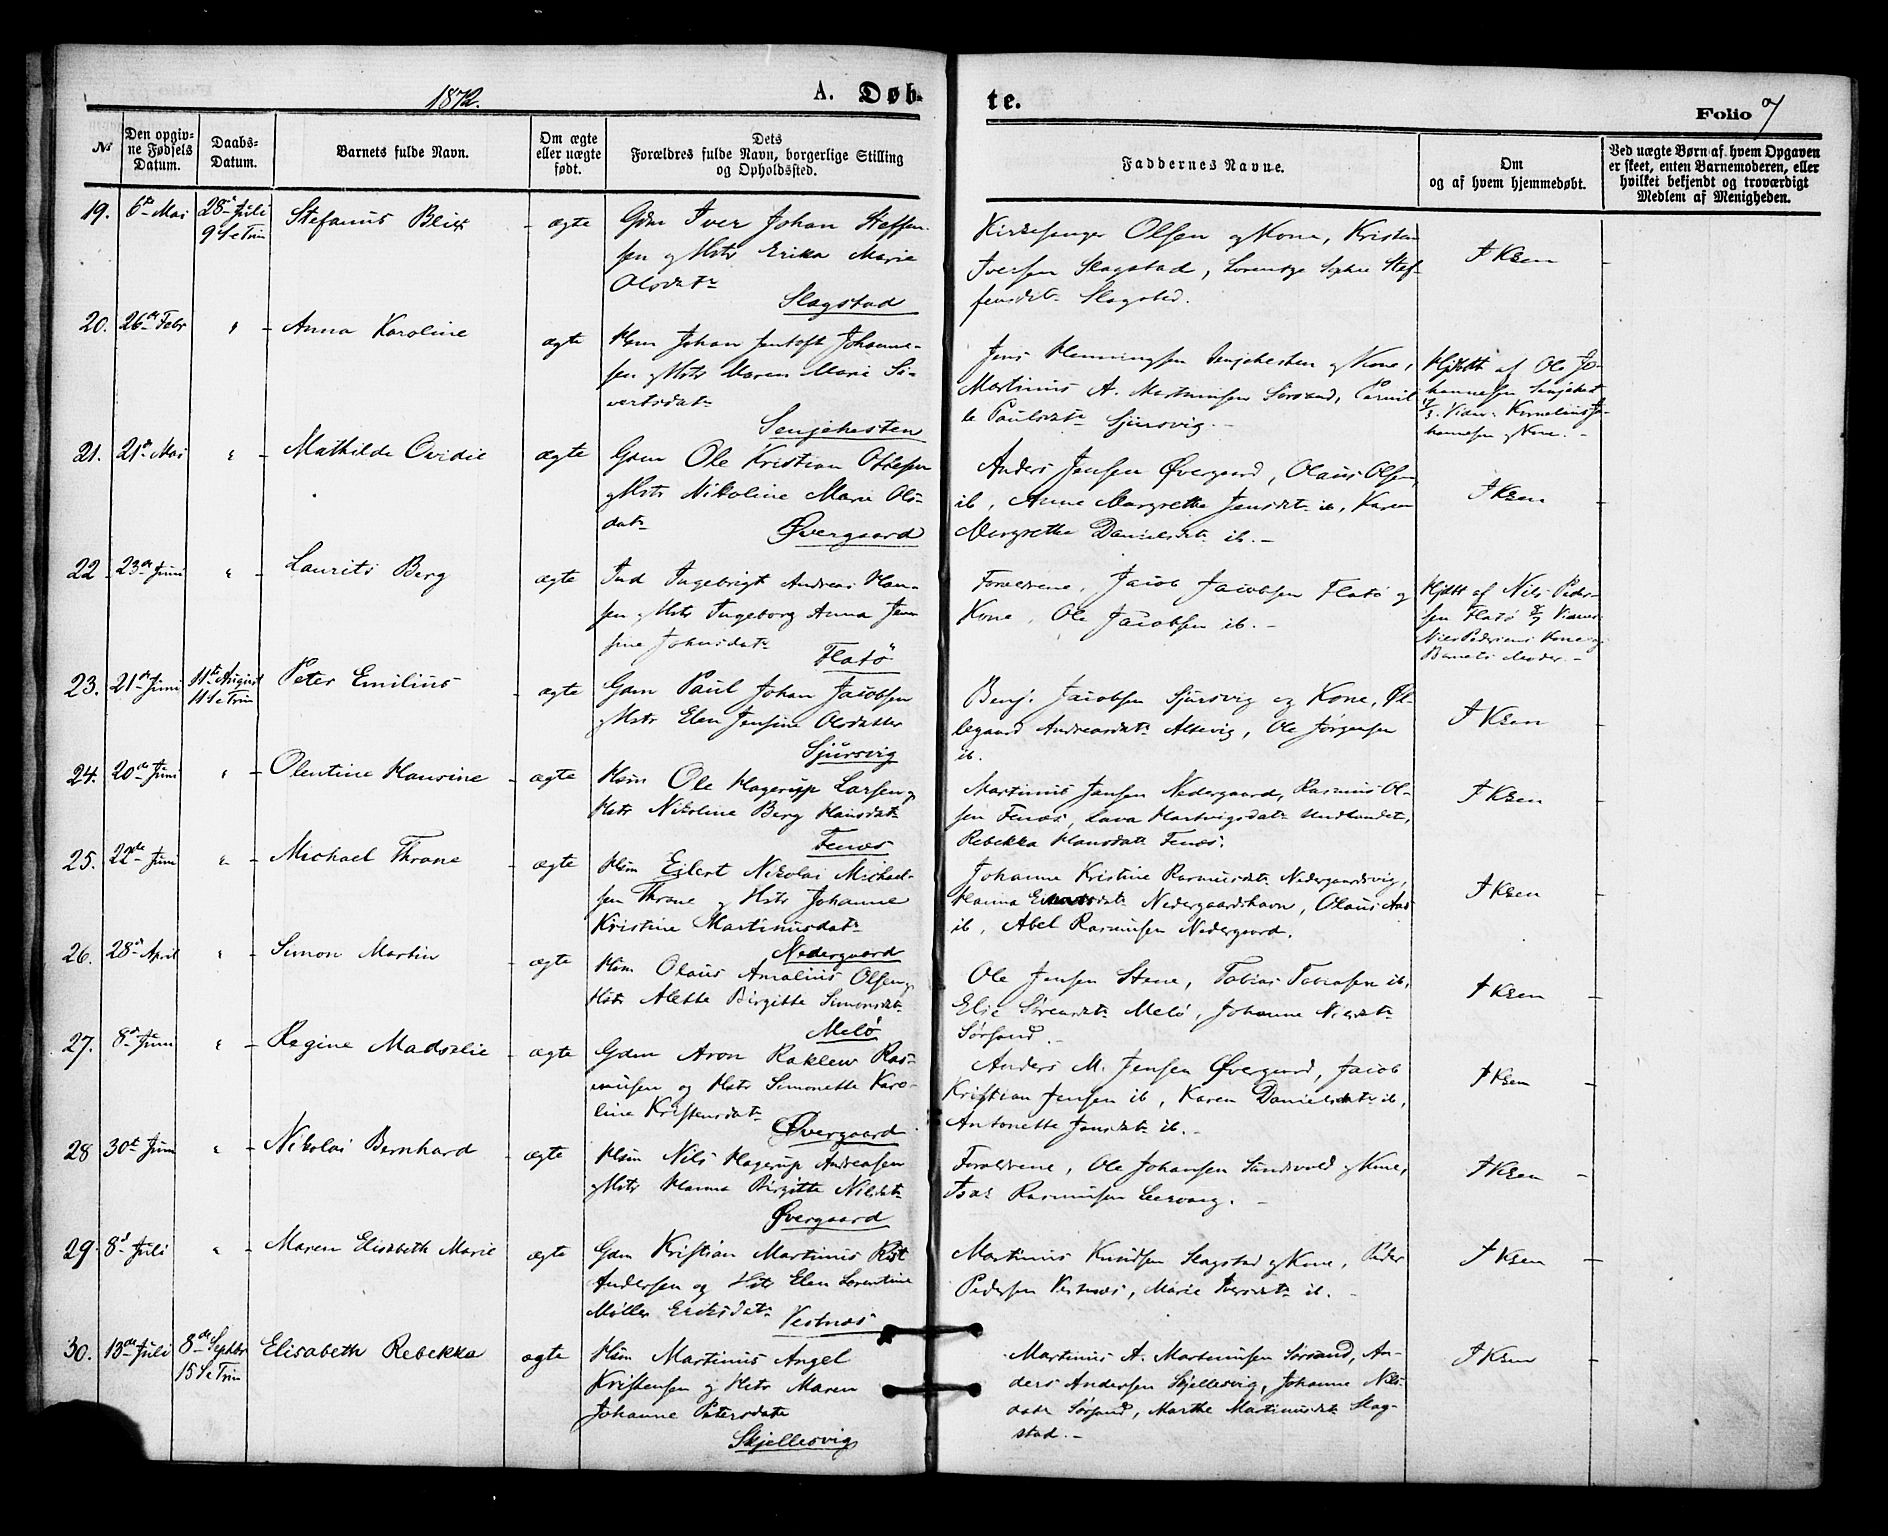 1872.
A. Døb-
te.
Folio 7
№
Den opgiv-
ne Fødsels
Datum.
Daabs-
Datum.
Barnets fulde Navn.
Om ægte
eller uægte
født.
Dets
Forældres fulde Navn, borgerlige Stilling
og Opholdssted.
Faddernes Navne.
Om
og af hvem hjemmedøbt.
Ved uægte Børn af hvem Opgaven
er skeet, enten Barnemoderen, eller
hvilket bekjendt og troværdigt
Medlem af Menigheden.
19.
6te Mai
28de Juli
9 S e Trin
Stefanus Blix
ægte
Gdm Iver Johan Steffen-
sen og Hstr Erika Marie
Olsdatr
Slagstad
Kirkesanger Olsen og Kone, Kristen
Iversen Slagstad, Lorentze Sophie Stef-
fensdtr Slagstad.
I Ksen
20.
26de Febr
"
Anna Karoline
ægte
Hsm Johan Jentoft Johanne-
sen og Hstr Maren Marie Si-
vertsdatr
Senjehesten
Jens Henningsen Senjehesten og Kone,
Martinus A. Martinussen Sørsand, Pernil-
le Paulsdatr Sjursvig.
Hjdøbt af Ole Jo-
hannesen Senjehest
Vidner: Kornelius Jo-
hannesen og Kone.
21.
21de Mai
"
Mathilde Ovidie
ægte
Gdm Ole Kristian Ottesen
og Hstr Nikoline Marie Ols-
datr
Øvergaard
Anders Jensen Øvergaard, Olaus Olsen
ib, Anne Margrethe Jensdtr ib, Karen
Margrethe Danielsdtr ib.
I Ksen
22
23de Juni
"
Laurits Berg
ægte
Ind Ingebrigt Andreas Han-
sen og Hstr Ingeborg Anna Jen-
sine Johnsdatr
Flatö
Forældrene, Jacob Jacobsen Flatö og
Kone, Ole Jacobsen ib.
Hjdøbt af Nils Peder-
sen Flatö Vidner
Nils Pedersens Kone og
Barnets Moder
23.
21de Juni
11te August
11 S e Trin
Peter Emilius
ægte
Gdm Paul Johan Jacobsen
og Hstr Elen Jensine Olsdatter
Sjursvig
Benj. Jacobsen Sjursvig og Kone, Øl-
legaard Andreasdtr Altevig, Ole Jørgensen
ib.
I Ksen
24.
20de Juni
"
Olentine Hansine
ægte
Hsm Ole Hagerup Larsen og
Hstr Nikoline Berg Hansdatr
Fenæs
Martinus Jansen Nedergaard, Rasmus Ol-
sen Fenæs, Lava Hartvigsdatr Undlandet,
Rebekka Hansdatr Fenæs.
I Ksen
25.
22de Juni
"
Michael Thrane
ægte
Hsm Eilert Nikolai Michael-
sen Thrane og Hstr Johanne
Kristine Martinusdatr
Nedergaard
Johanne Kristine Rasmusdtr Nedergaardsvig,
Hanna Nedergaardshavn, Olaus
ib, Abel Rasmussen Nedergaard.
I Ksen
26.
28de April
"
Simon Martin
ægte
Hsm Olaus Amalius Olsen og
Hstr Alette Birgitte Simonsdtr
Melö
Ole Jensen Stene, Tobias Tobiasen ib,
Elie Sörensdtr Melö, Johanne Nilsdtr
Sörsand.
I Ksen
27.
8de Juni
"
Regine Madselie
ægte
Gdm Aron Raklew Ras-
mussen og Hstr Simonette Karo-
line Kristensdatr
Øvergaard
Anders M. Jensen Øvergaard, Jacob
Kristian Jensen ib, Karen Danielsdatr ib,
Antonette Jensdtr ib.
I Ksen
28
30te Juni
"
Nikolai Bernhard
ægte
Hsm Nils Hagerup Andreasen
og Hstr Hanna Birgitte Nilsdatr
Øvergaard
Forældrene, Ole Johansen Sandvold og Kone,
Isak Rasmussen Leervaag.
I Ksen
29
8de Juli
"
Maren Elisabeth Marie
ægte
Gdm Kristian Martinus Rist
Andersen og Hst Elen Lorentine
Møller Eriksdatr
Vestnæs
Martinus Knudsen Slagstad og Kone, Peder
Pedersen Vestnæs, Marie Iversdtr ib.
I Ksen
30.
13de Juli
8de Septbr
15 S e Trin
Elisabeth Rebekka
ægte
Hsm Martinus Angel
Kristensen og Hstr Maren
Johanne Petersdatr
Skjellesvig
Martinus A. Martinussen Sørsand, An-
ders Andersen Skjellesvig, Johanne Nils-
datr Sørsand, Marthe Martinusdtr Slag-
stad.
I Ksen